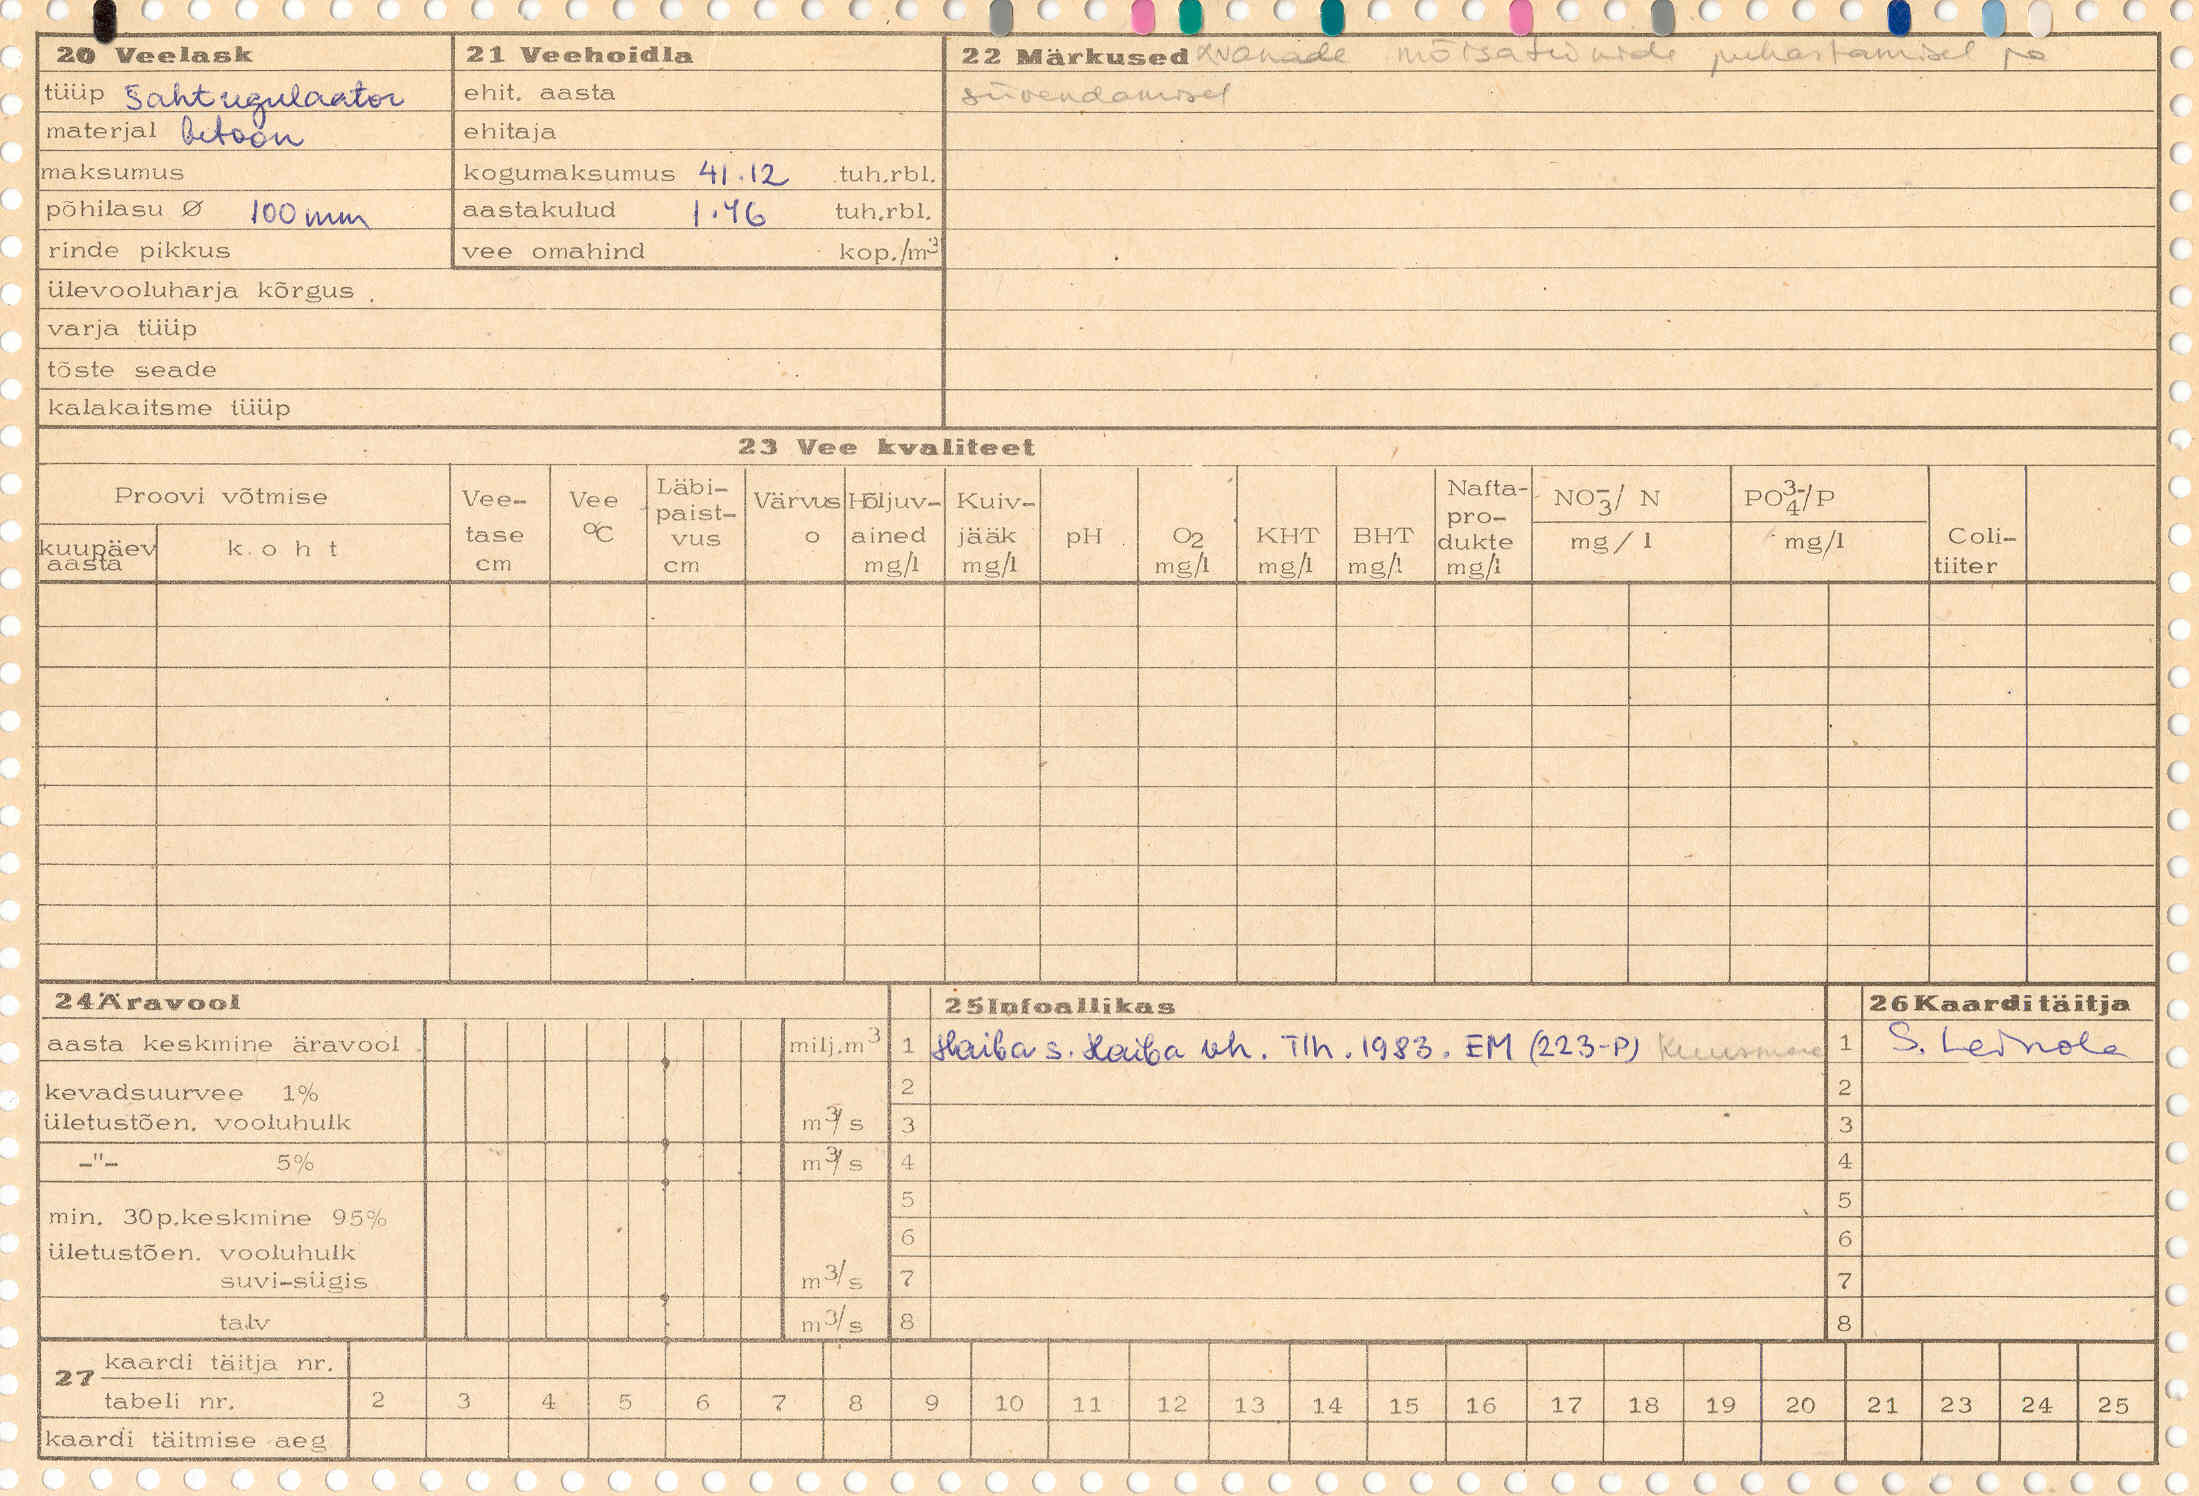 20 Veelask
tüüp Šahtregulaator
materjal betoon
maksumus
põhilasu Ø 100 mm
rinde pikkus
ülevooluharja kõrgus
varja tüüp
tõste seade
kalakaitsme tüüp
21 Veehoidla
ehit. aasta
ehitaja
kogumaksumus 41.12 tuh.rbl.
aastakulud 1.46 tuh.rbl.
vee omahind kop./m³
22 Märkused Vanade mõisatiikide puhastamisel ja
süvendamisel
23 Vee kvaliteet
Proovi võtmise
kuupäev
aasta
koht
Vee-
tase
cm
Vee
°C
Läbi-
paist-
vus
cm
Värvus
o
Hõljuv-
ained
mg/l
Kuiv-
jääk
mg/l
pH
O2
mg/l
KHT
mg/l
BHT
mg/l
Nafta-
pro-
dukte
mg/l
NO3⁻/ N
mg/l
PO4³⁻/P
mg/l
Coli-
tiiter
24 Äravool
aasta keskmine äravool milj.m³
kevadsuurvee 1%
ületustõen. vooluhulk m³/s
-"- 5% m³/s
min. 30p.keskmine 95%
ületustõen. vooluhulk
suvi-sügis m³/s
talv m³/s
25 Infoallikas
1 Haiba s. Haiba vh. Tln. 1983. EM (223-P)
2
3
4
5
6
7
8
26 Kaardi täitja
1 S. Leinola
2
3
4
5
6
7
8
27
kaardi täitja nr.
tabeli nr. 2 3 4 5 6 7 8 9 10 11 12 13 14 15 16 17 18 19 20 21 23 24 25
kaardi täitmise aeg